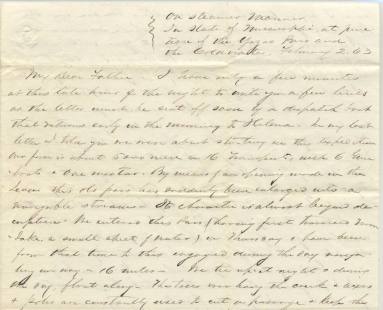 On steamer
In State of Mississippi, at junc-
tion of the Yazoo Pass and
the Coldwater, February 2. 63
My dear Father - I have only a few minutes
at this late hour of the night to write you a few lines
as the letter must be sent off soon by a dispatch boat
that returns early in the morning to Helena. In my last
letter I told you we were about starting on this expedition
Our force is about 5000 men on 16 transports, with 6 Gun-
boats & one mortar. By means of an opening made in the
levee this old pass has suddenly been enlarged into a
navigable stream. Its character is almost beyond de-
scription. We entered this Pass (having first traversed Moon
Lake, a small sheet of water) on Thursday & have been
from that time to this engaged during the day
in way - 16 miles - We tie up at night & during
the day float along. The trees overhang the & axes
& poles are constantly used to cut a passage & keep the